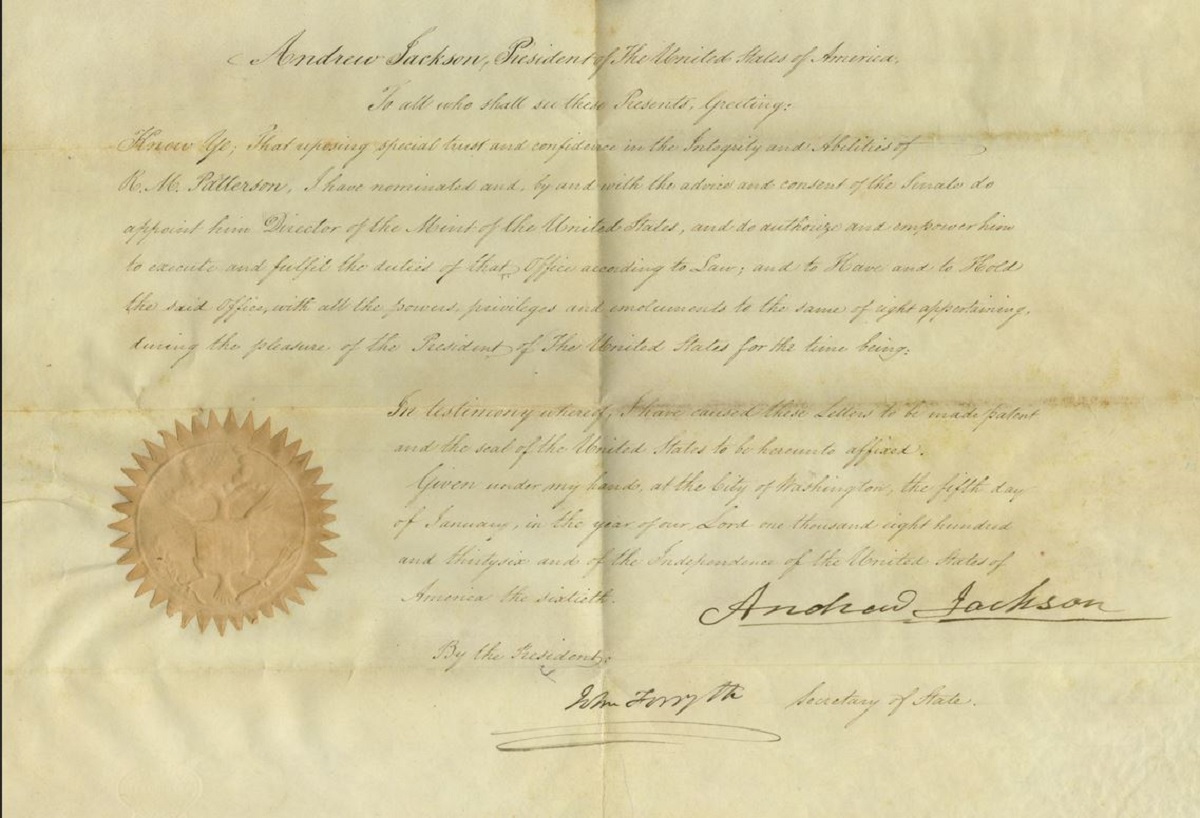 Andrew Jackson, President of The United States of America,
To all who shall see these Presents, Greeting:
Know Ye; That reposing special trust and confidence in the Integrity and Abilities of
R. M. Patterson, I have nominated and, by and with the advice and consent of the Senate do
appoint him Director of the Mint of the United States, and do authorize and empower him
to execute and fulfil the duties of that Office according to Law; and to Have and to Hold
the said Office, with all the powers, privileges and emoluments to the same of right appertaining,
during the pleasure of the President of The United States for the time being:
In testimony whereof, I have caused these Letters to be made patent
and the seal of the United States to be hereunto affixed.
Given under my hand, at the City of Washington, the fifth day
of January, in the year of our Lord one thousand eight hundred
and thirtysix and of the Independence of the United States of
America the sixtieth.
Andrew Jackson
By the President:
John Forsyth Secretary of State.